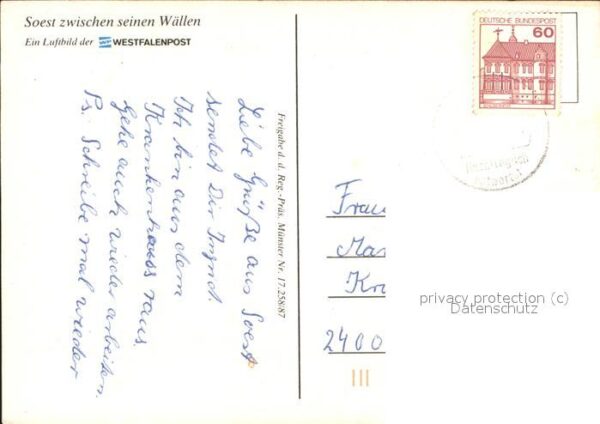 Soest zwischen seinen Wällen
Ein Luftbild der WESTFALENPOST
DEUTSCHE BUNDESPOST
60
Liebe Grüße aus Soest
sendet Dir Ingrid.
Ich bin aus dem
Krankenhaus raus.
Gehe auch wieder arbeiten.
Ps. Schreibe mal wieder
Freigabe d. d. Reg.-Präs. Münster Nr. 17.258/87
Frau
Mar
Kr
2400
privacy protection (c)
Datenschutz